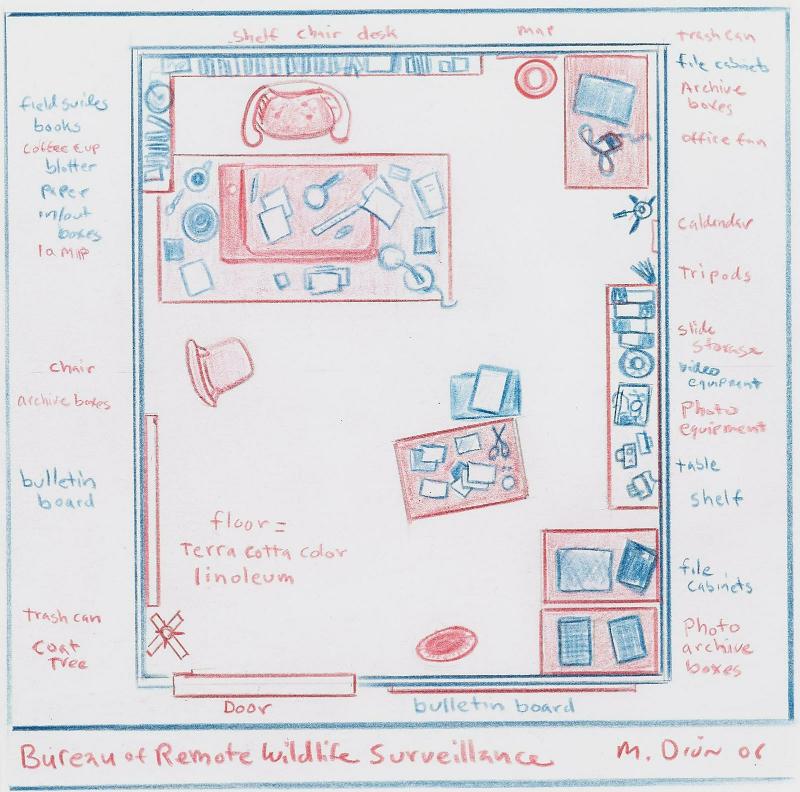 shelf chair desk
map
trash can
file cabinets
Archive
boxes
office fan
field guides
books
coffee cup
blotter
paper
in/out
boxes
lamp
Caldendar
Tripods
slide
storage
video
equipment
Photo
equipment
table
shelf
chair
archive boxes
bulletin
board
floor =
Terra cotta color
linoleum
file
cabinets
Photo
archive
boxes
trash can
Coat
Tree
Door
bulletin board
Bureau of Remote Wildlife Surveillance
M. Dion 06